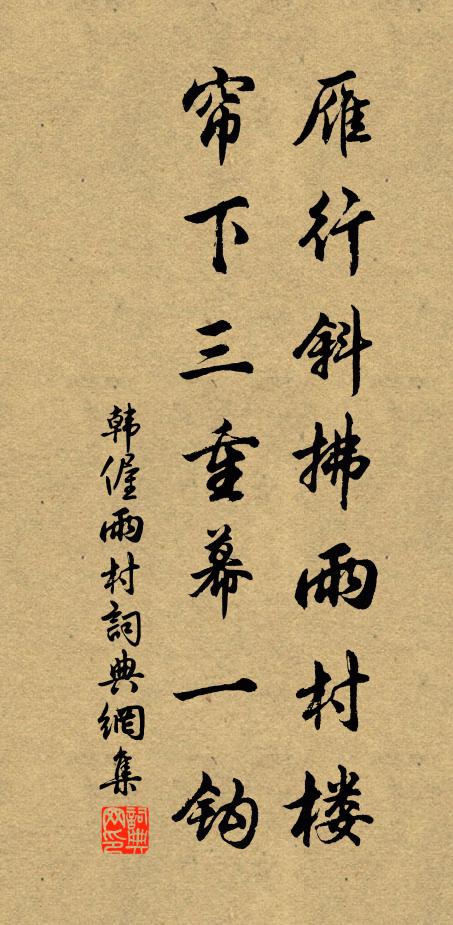 雁行斜拂雨村楼
帘下三重幕一钩
韩偓雨村詞典網集
詞典网印